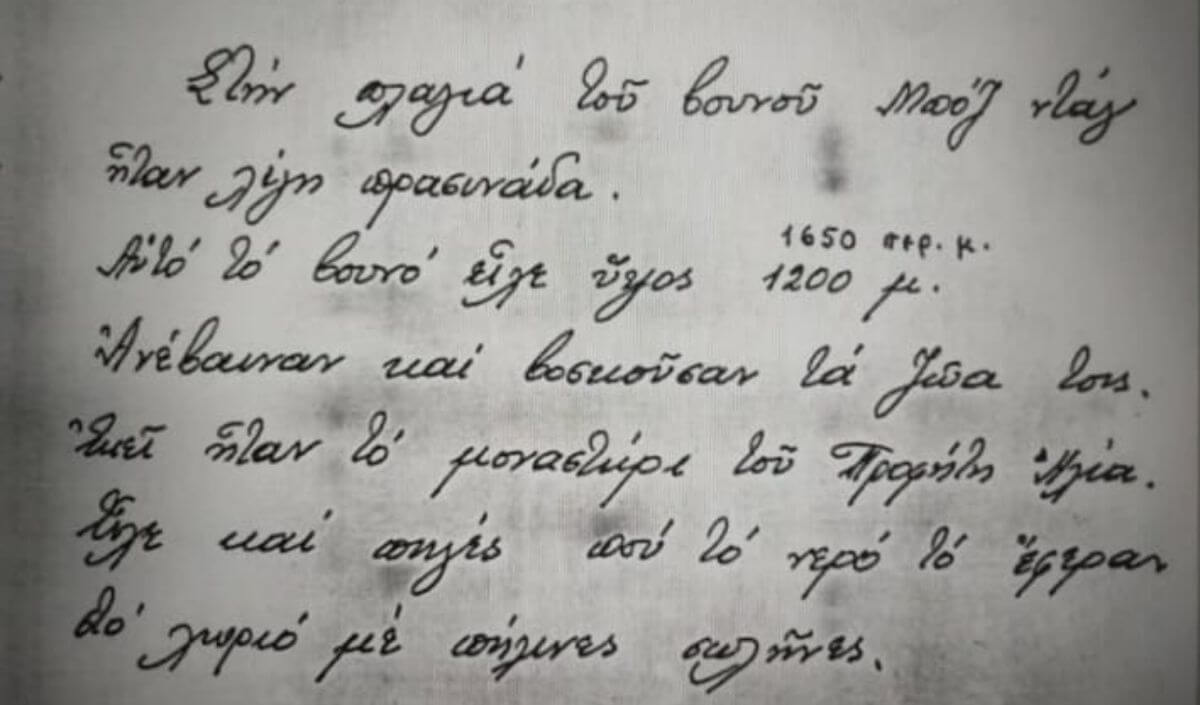 Στήν πλαγιά τοῦ βουνοῦ Μπόζ ντάγ
ἦταν λίγη πρασινάδα.
Αὐτό τό βουνό εἶχε ὕψος 1200 μ.
1650 περ. μ.
Ἀνέβαιναν καί βοσκοῦσαν τά ζῶα τους.
Ἐκεῖ ἦταν τό μοναστήρι τοῦ Προφήτη Ἠλία.
Εἶχε καί πηγές πού τό νερό τό ἔφεραν
στό χωριό μέ πήλινες σωλῆνες.